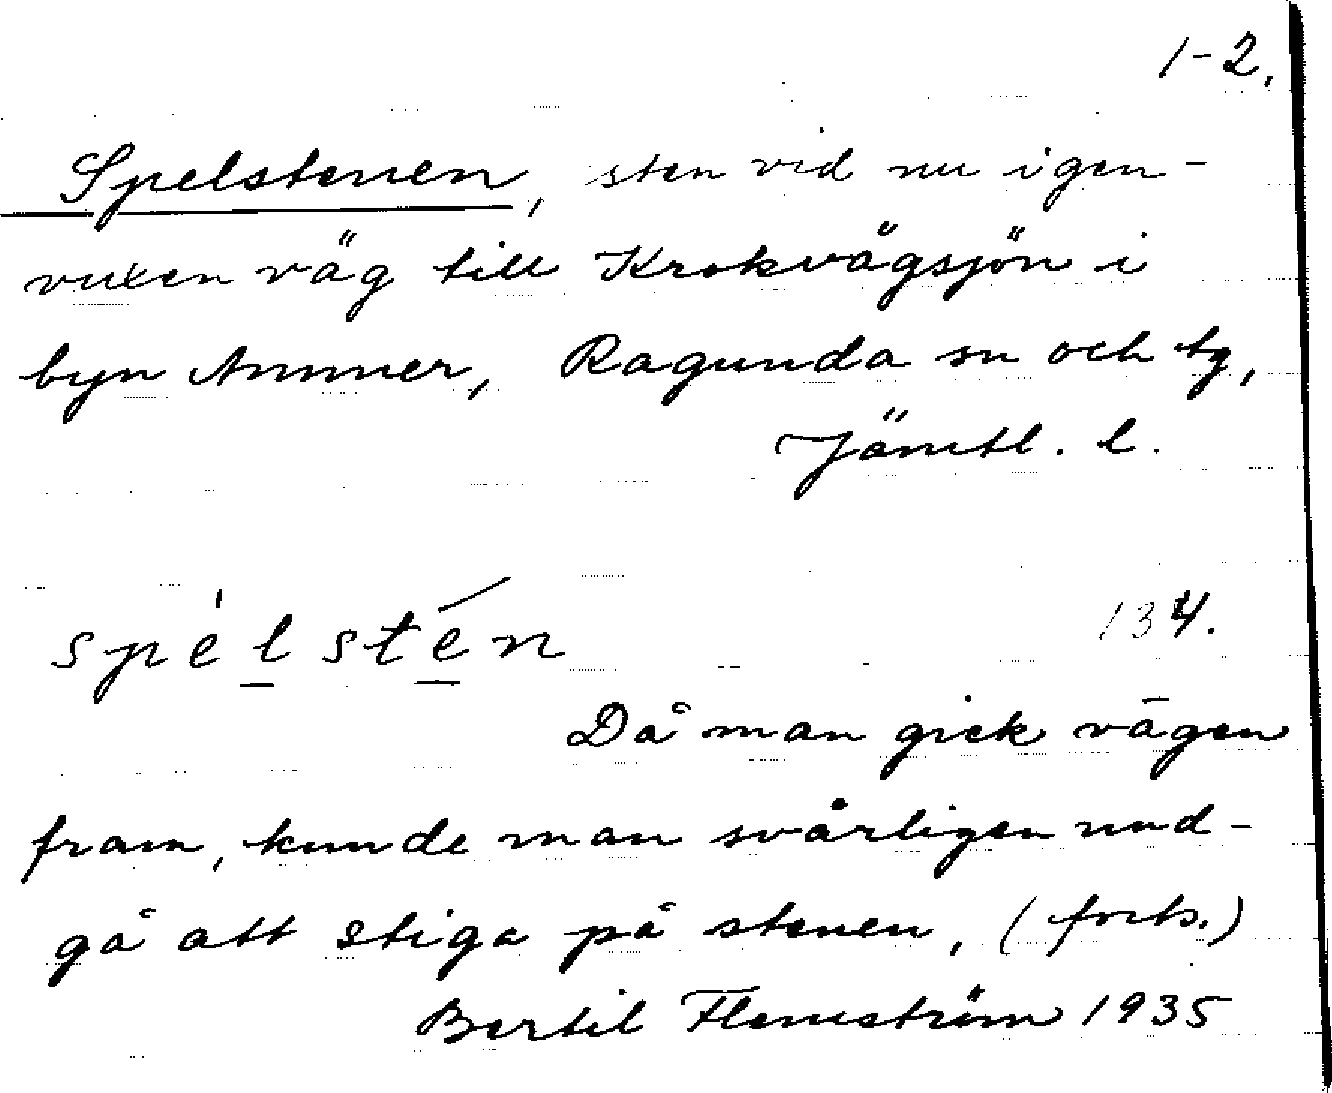 1-2.
Spelstenen, sten vid nu igen-
vuxen väg till Krokvågsjön i
byn Ammer, Ragunda sn och tg,
Jämtl. l.
spe̱l ste̱n 134.
Då man gick vägen
fram, kunde man svårligen und-
gå att stiga på stenen, (forts.)
Bertil Flemström 1935